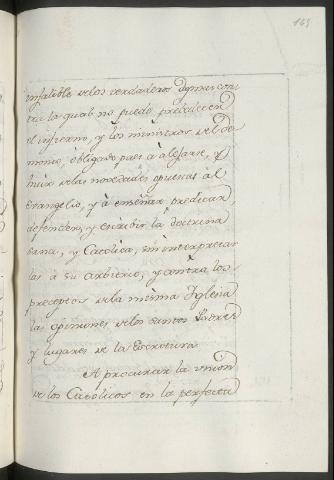 145
infalible de los verdaderos dogmas con
tra la qual no puede prebalecer
el infierno, y los ministros del de
monio, obligados pues á alejarse, y
huir de las novedades opuestas al
evangelio, y á enseñar, predicar,
defender, y escribir la doctrina
sana, y Católica, sin interpretar
las á su arbitrio, y contra los
preceptos de la misma Iglesia
las opiniones de los santos Padres
y lugares de la Escritura.
A procurar la union
de los Católicos en la perfecta